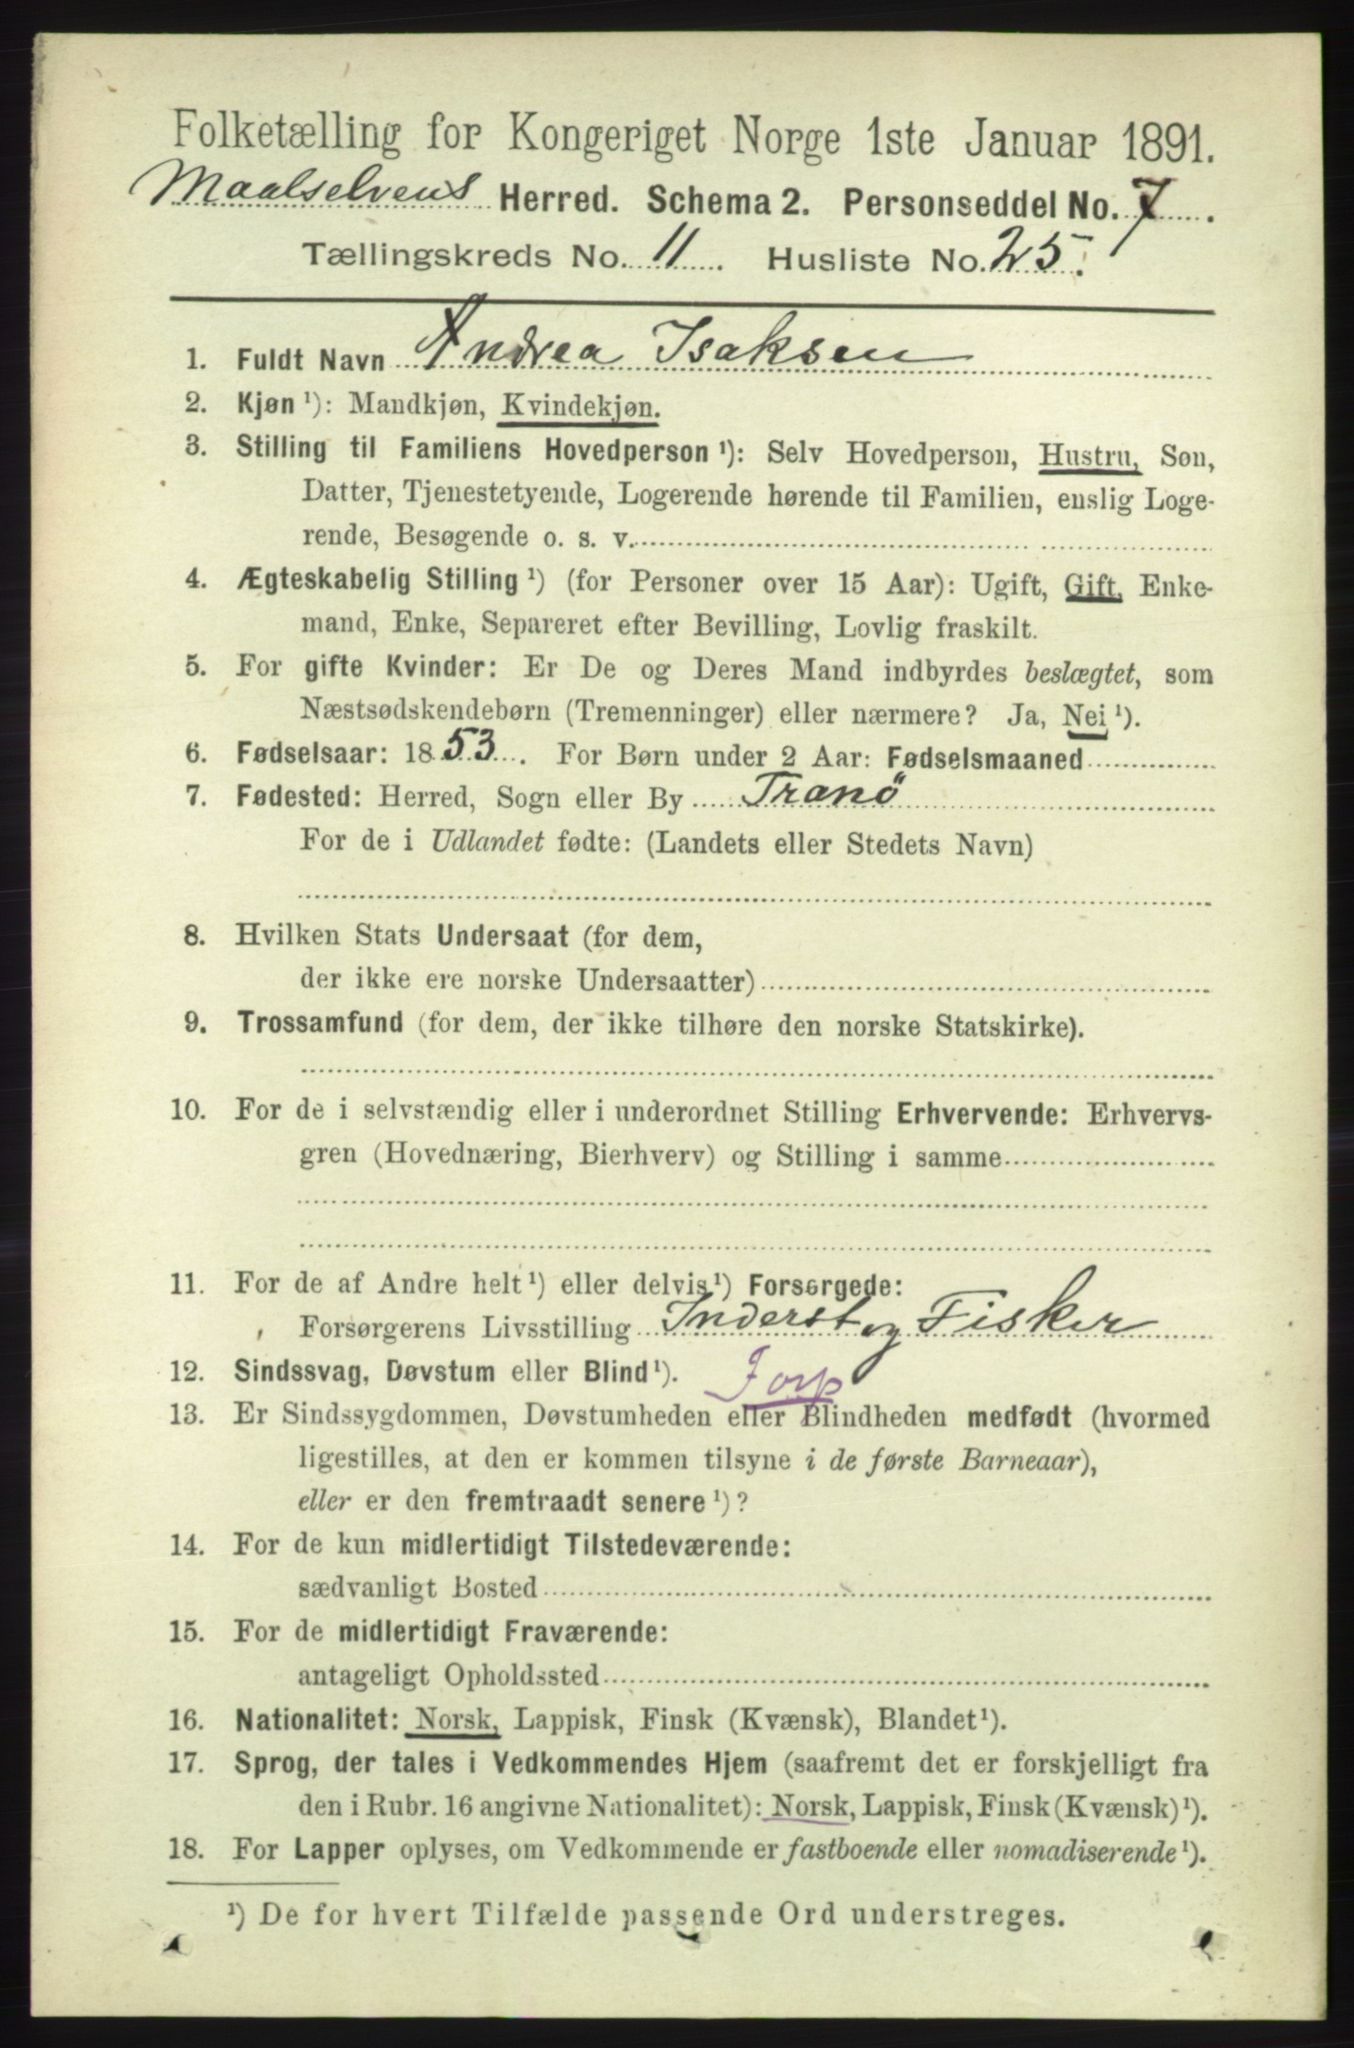 Folketælling for Kongeriget Norge 1ste Januar 1891.
Maalselvens Herred. Schema 2. Personseddel No. 7.
Tællingskreds No. 11. Husliste No. 25.
1. Fuldt Navn Andrea Isaksen
2. Kjøn ¹): Mandkjøn, Kvindekjøn.
3. Stilling til Familiens Hovedperson ¹): Selv Hovedperson, Hustru, Søn,
Datter, Tjenestetyende, Logerende hørende til Familien, enslig Loge-
rende, Besøgende o. s. v.
4. Ægteskabelig Stilling ¹) (for Personer over 15 Aar): Ugift, Gift, Enke-
mand, Enke, Separeret efter Bevilling, Lovlig fraskilt.
5. For gifte Kvinder: Er De og Deres Mand indbyrdes beslægtet, som
Næstsødskendebørn (Tremenninger) eller nærmere? Ja, Nei ¹).
6. Fødselsaar: 1853. For Børn under 2 Aar: Fødselsmaaned
7. Fødested: Herred, Sogn eller By Tranö
For de i Udlandet fødte: (Landets eller Stedets Navn)
8. Hvilken Stats Undersaat (for dem,
der ikke ere norske Undersaatter)
9. Trossamfund (for dem, der ikke tilhøre den norske Statskirke).
10. For de i selvstændig eller i underordnet Stilling Erhvervende: Erhvervs-
gren (Hovednæring, Bierhverv) og Stilling i samme
11. For de af Andre helt ¹) eller delvis ¹) Forsørgede:
Forsørgerens Livsstilling Inderst og Fisker
12. Sindssvag, Døvstum eller Blind ¹). Forp
13. Er Sindssygdommen, Døvstumheden eller Blindheden medfødt (hvormed
ligestilles, at den er kommen tilsyne i de første Barneaar),
eller er den fremtraadt senere ¹)?
14. For de kun midlertidigt Tilstedeværende:
sædvanligt Bosted
15. For de midlertidigt Fraværende:
antageligt Opholdssted
16. Nationalitet: Norsk, Lappisk, Finsk (Kvænsk), Blandet ¹).
17. Sprog, der tales i Vedkommendes Hjem (saafremt det er forskjelligt fra
den i Rubr. 16 angivne Nationalitet): Norsk, Lappisk, Finsk (Kvænsk) ¹).
18. For Lapper oplyses, om Vedkommende er fastboende eller nomadiserende ¹).
¹) De for hvert Tilfælde passende Ord understreges.